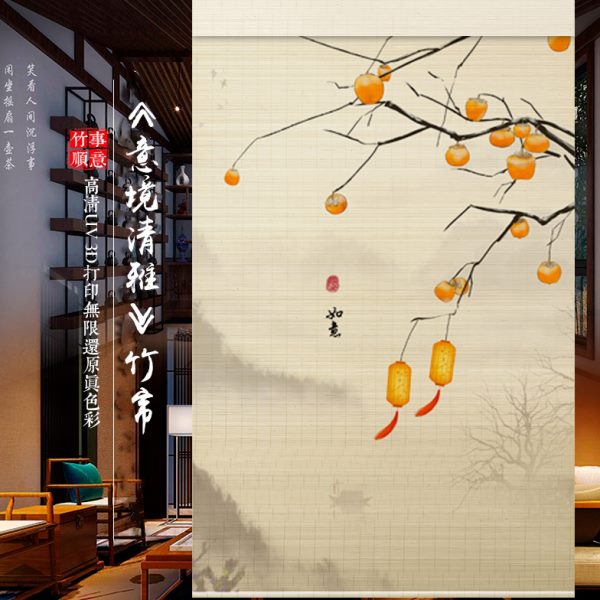 笑看人间沉浮事
闲坐摇扇一壶茶
竹事
順意
《意境清雅》竹帘
高清UV 3D打印無限還原眞色彩
如意